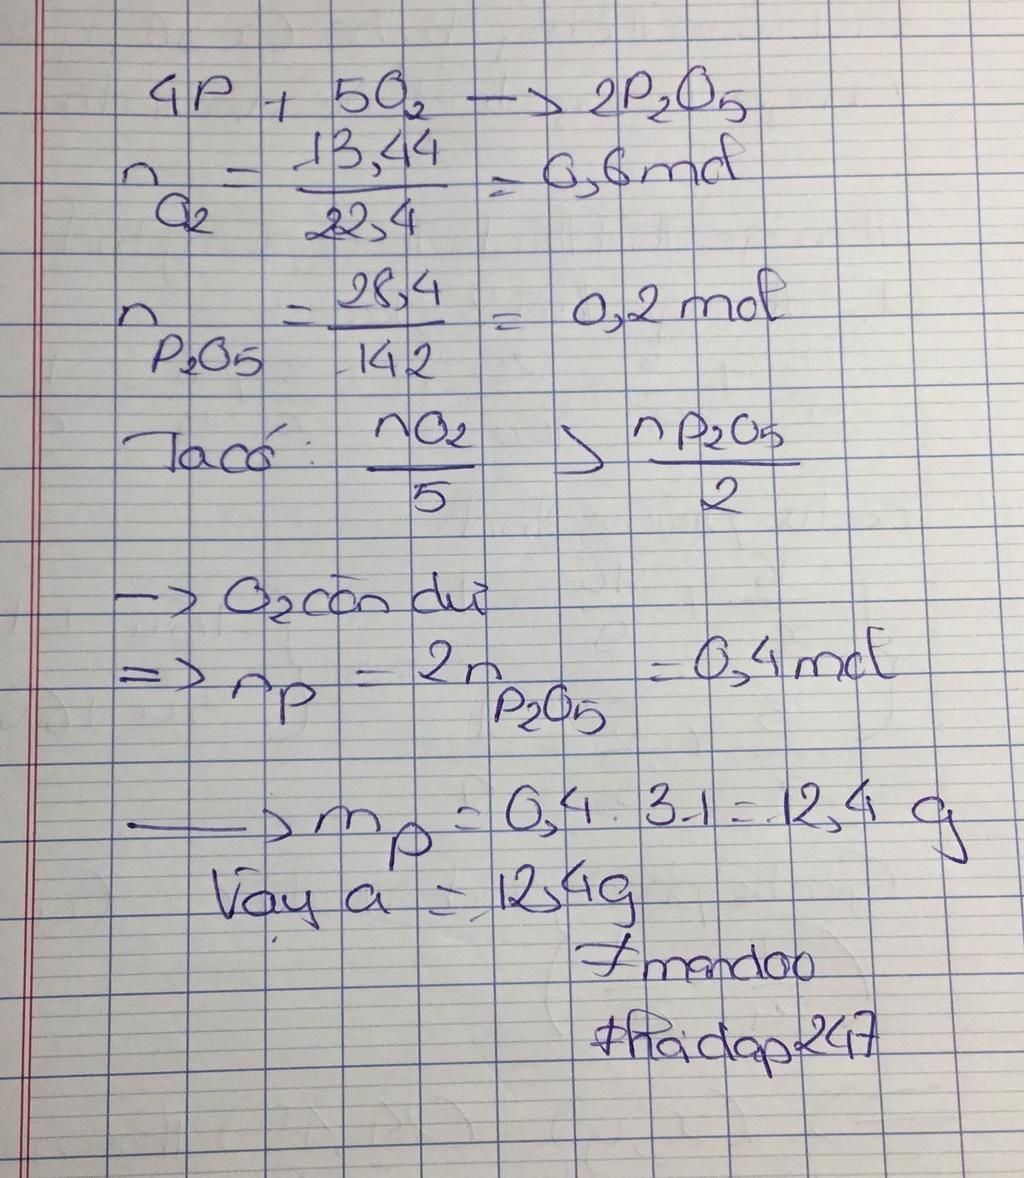 4P + 5O₂ —> 2P₂O₅
n O₂ = 13,44 / 22,4 = 0,6 mol
n P₂O₅ = 28,4 / 142 = 0,2 mol
Ta có: nO₂ / 5 > nP₂O₅ / 2
—> O₂ còn dư
=> nP = 2n P₂O₅ = 0,4 mol
—> mP = 0,4 . 31 = 12,4 g
Vậy a = 12,4g
#mandoo
#hỏidap247